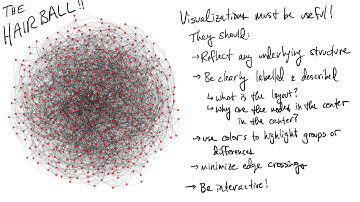 THE
HAIRBALL!!
Visualizations must be useful!
They should:
→ Reflect any underlying structure
→ Be clearly labelled & described
↳ what is the layout?
↳ why are the nodes in the center
in the center?
→ use colors to highlight groups or
differences
→ minimize edge crossings
→ Be interactive!